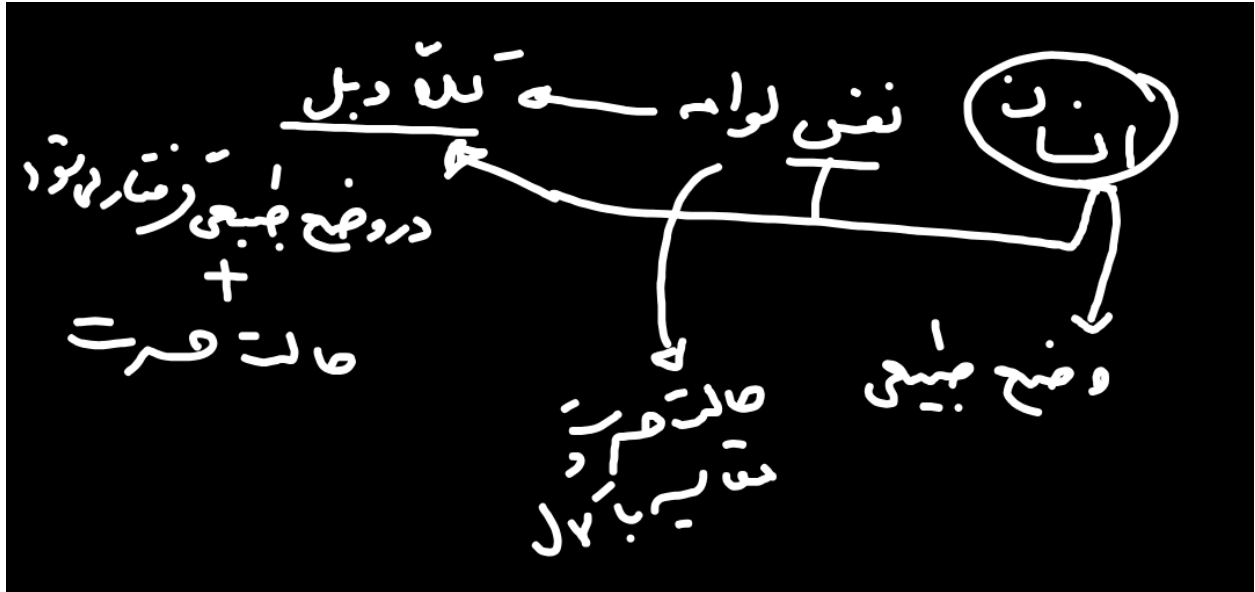 انسان نفس لوامه ← دبل
در وضع طبیعی گرفتار می شود
+
حالت حسرت
وضع طبیعی
حالت حسرت و
مقایسه با